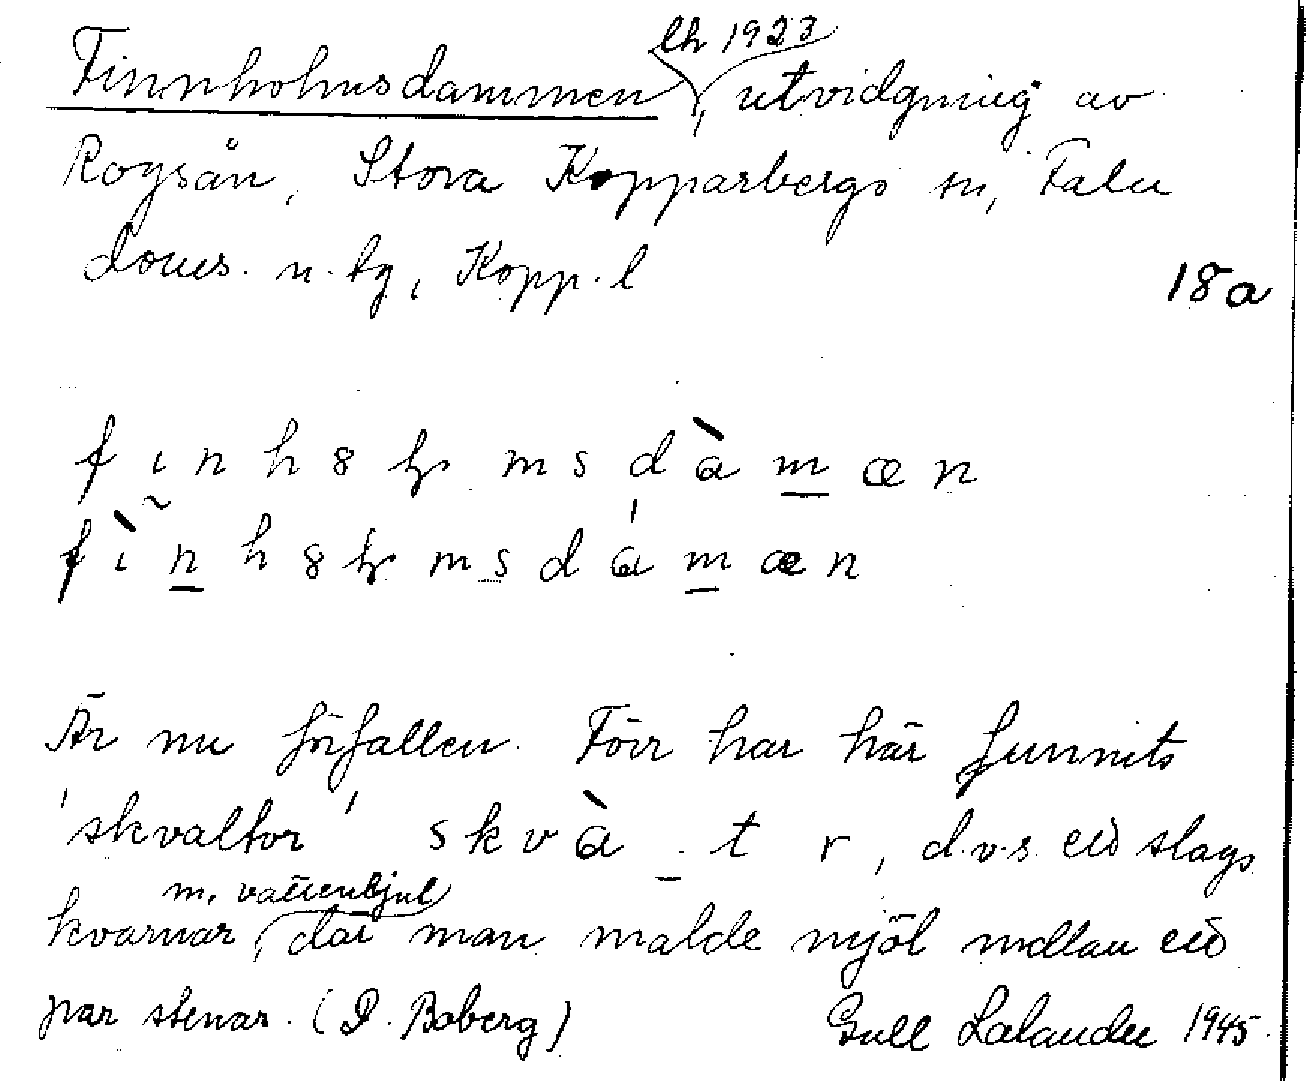 lh 1923
Finnholmsdammen, utvidgning av
Rogsån, Stora Kopparbergs sn, Falu
doms. n. tg, Kopp. l
18a
f ı n h 8 ms d à m æ n
f ì n h 8 m s d á m æ n
Är nu förfallen. Förr har här funnits
'skvaltor' s k v à t r, d.v.s. ett slags
m. vattenhjul
kvarnar, där man malde mjöl mellan ett
par stenar. (P. Boberg) Gull Lalander 1945.